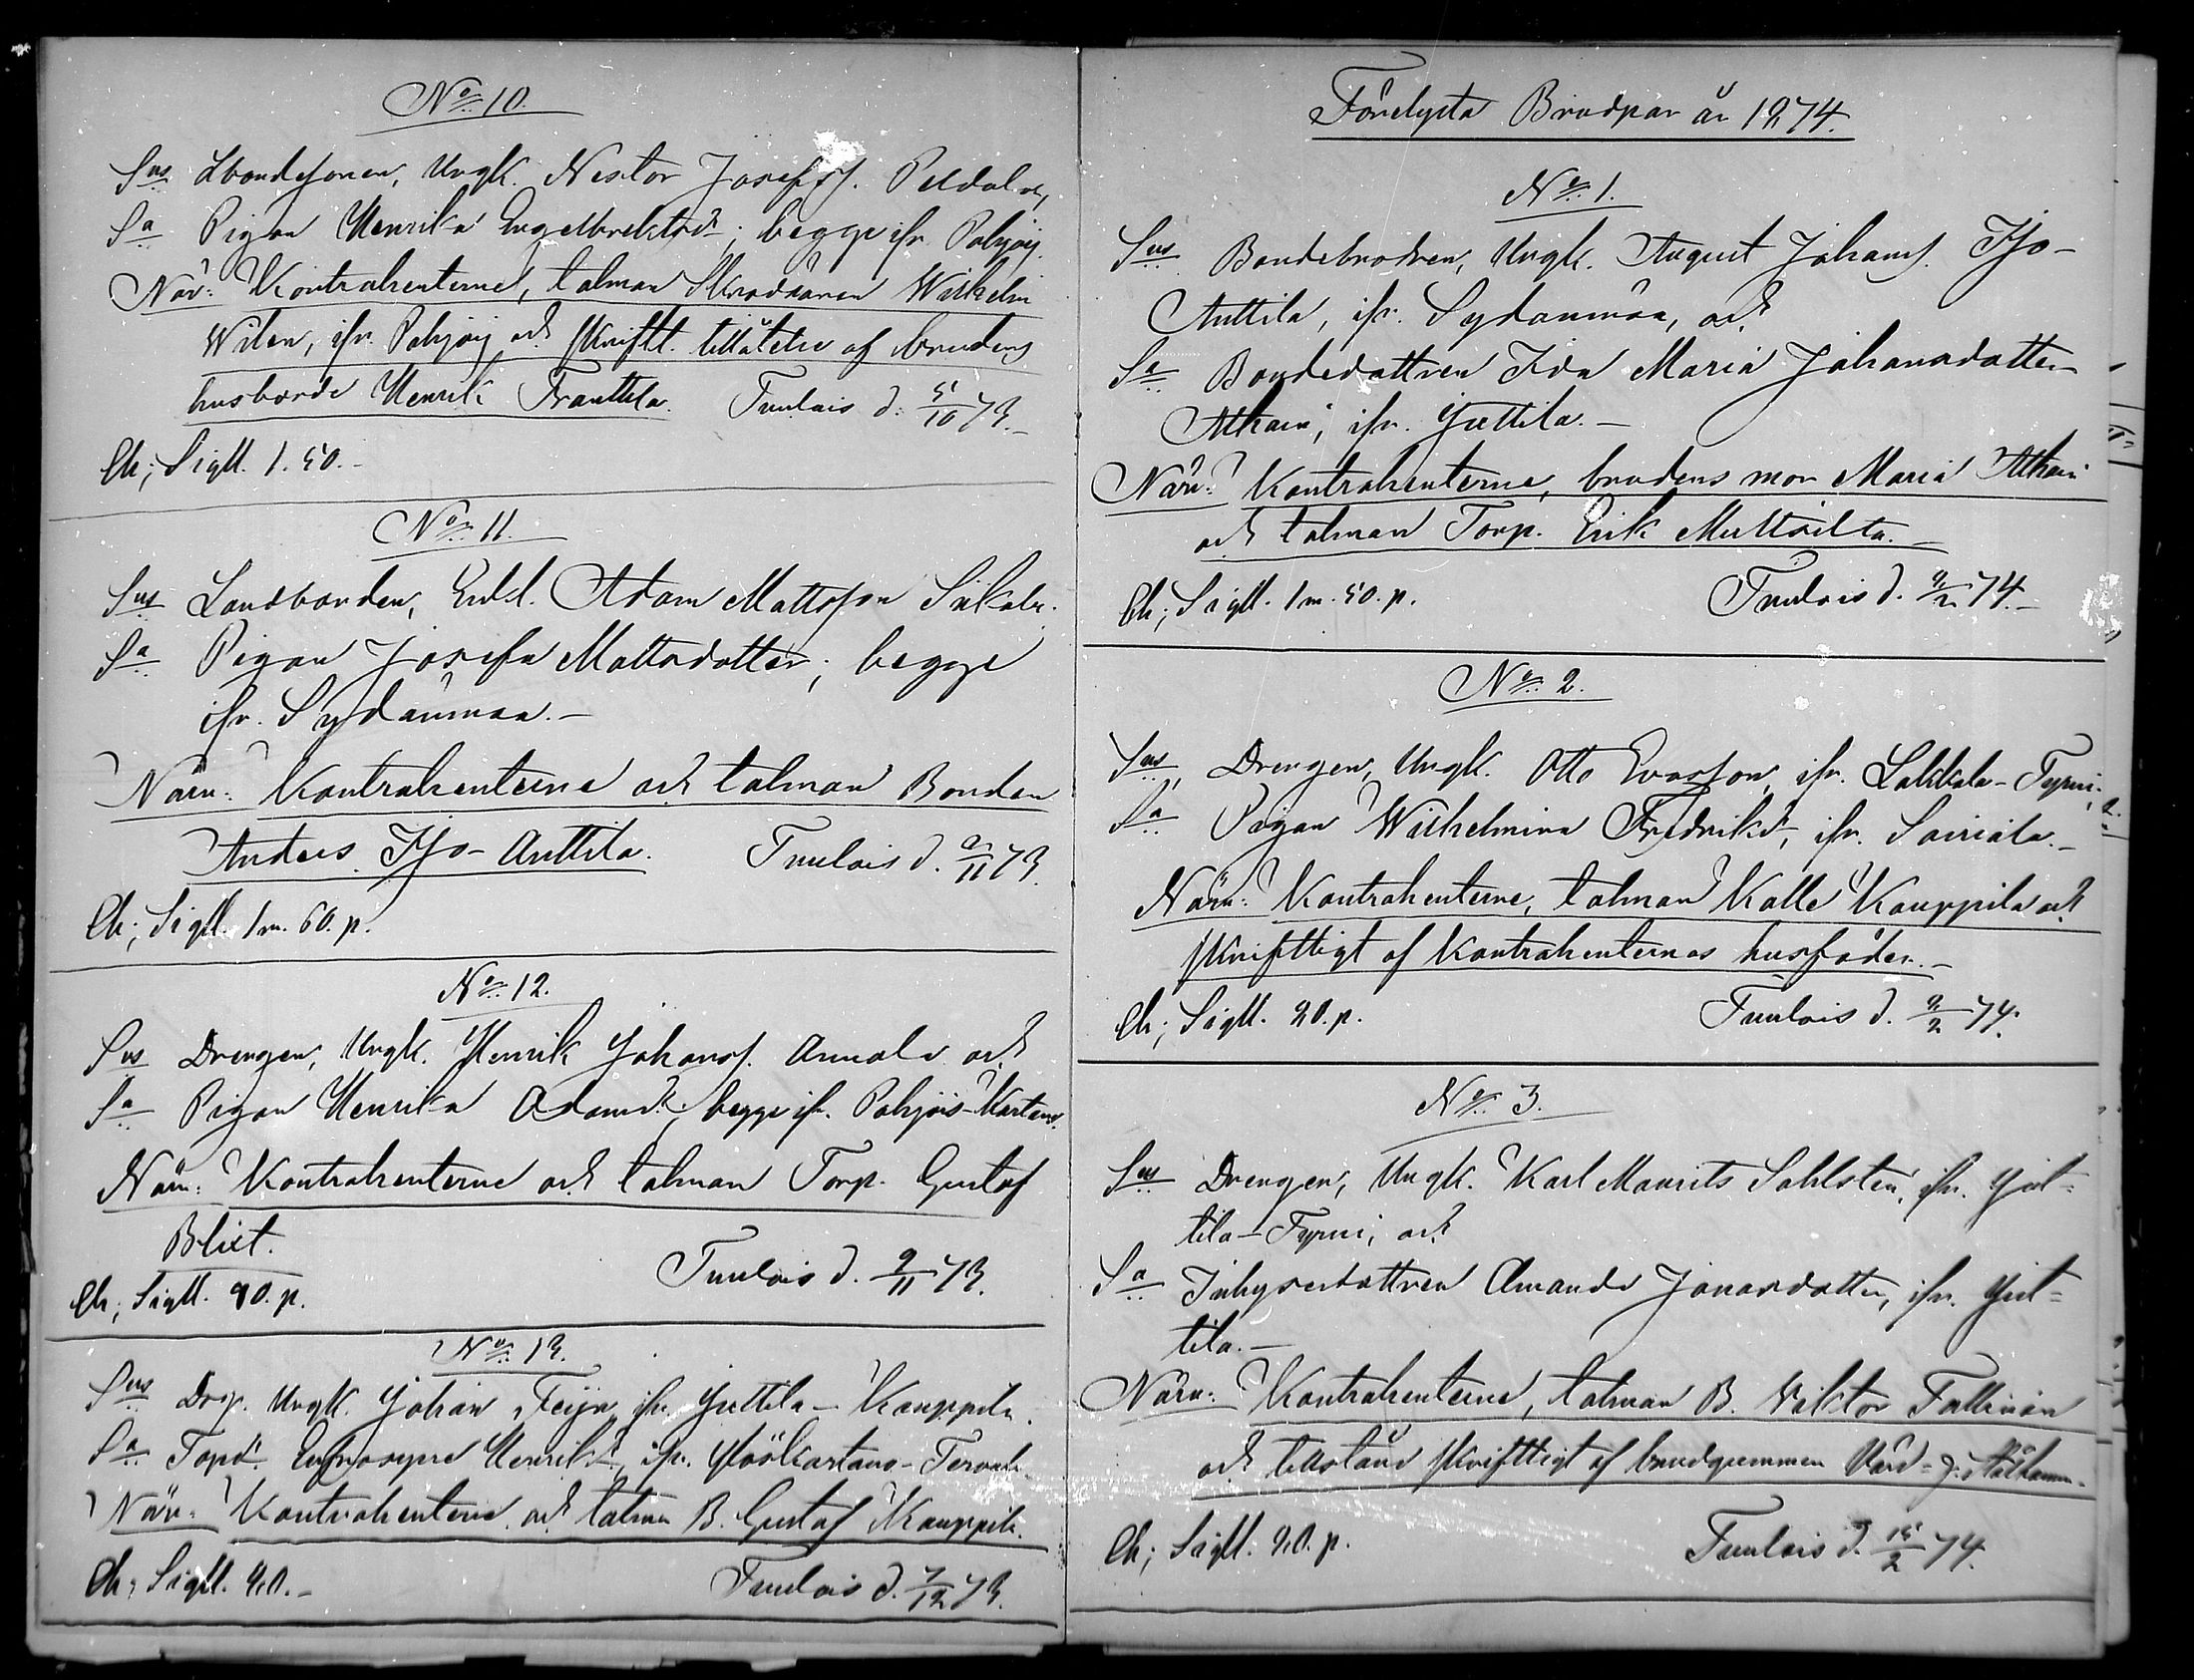 No 10.
Sus Lbondesonen, Ungk. Nestor Josefss.
Sa Pigan Henrika Engelbrektsdr; begge ifr. Pohjoij.
Närv: Kontrahenterne, talman Skräddaren Wilhelm
Wilen, ifr. Pohjoij och skriftl. tillåtelse af brudens
husbonde Henrik Franttila. Tuulois d. 5/10 73.
Ch; Sigill. 1.50.-
No 11.
Sus Landbonden, Enkl. Adam Mattsson
Sa Pigan Josefa Mattsdotter; begge
ifr. Sydänmaa.-
Närv: Kontrahenterne och talman Bonden
Anders Iso-Anttila. Tuulois d. 9/11 73.
Ch; Sigill. 1 m. 60. p.
No 12.
Sus Drengen, Ungk. Henrik Johanss. Annala och
Sa Pigan Henrika Adamsdr; begge ifr. Pohjois-Kartano.
Närv: Kontrahenterne och talman Torp. Gustaf
Blixt.
Ch; Sigill. 90. p. Tuulois d. 9/11 73.
No 13.
Sus Drg. Ungk. Johan Feijn ifr. Juttila-Kauppila.
Sa Henriksd., ifr.
Närv: Kontrahenterne och talman B. Gustaf Kauppila.
Ch; Sigill. 80.- Tuulois d. 7/12 73.
Förelysta Brudpar år 1874.
No 1.
Sus Bondebrodren, Ungk. August Johanss. Iso-
Anttila, ifr. Sydänmaa, och
Sa Bondedottren Ida Maria Johansdotter
Alhain, ifr. Juttila.-
Närv: Kontrahenterne, brudens mor Maria Alhain
och talman Torp. Erik Multsilta.-
Ch; Sigill. 1 m. 50. p. Tuulois d. 8/2 74.-
No 2.
Sus Drengen, Ungk. Otto Evasson, ifr. Lahkola-Tyrni;
Sa Pigan Wilhelmina Fredriksd., ifr. Sairiala.-
Närv: Kontrahenterne, talman Kalle Kauppila och
skriftligt af Kontrahenternas husbönder.-
Ch; Sigill. 80. p. Tuulois d. 8/2 74.
No 3.
Sus Drengen, Ungk. Karl Maurits Sahlsten, ifr. Jut=
tila-Tyrni, och
Sa Inhysesdottren Amanda Jonasdotter, ifr. Jut=
tila.-
Närv: Kontrahenterne, talman B. Viktor
och tillstånd skriftligt af brudgummen
Ch; Sigill. 80. p. Tuulois d. 15/2 74.